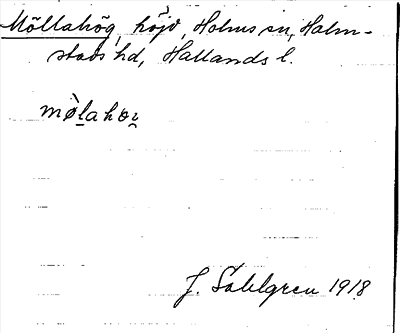 Möllahög, höjd, Holms sn, Halm-
stads hd, Hallands l.
J. Sahlgren 1918